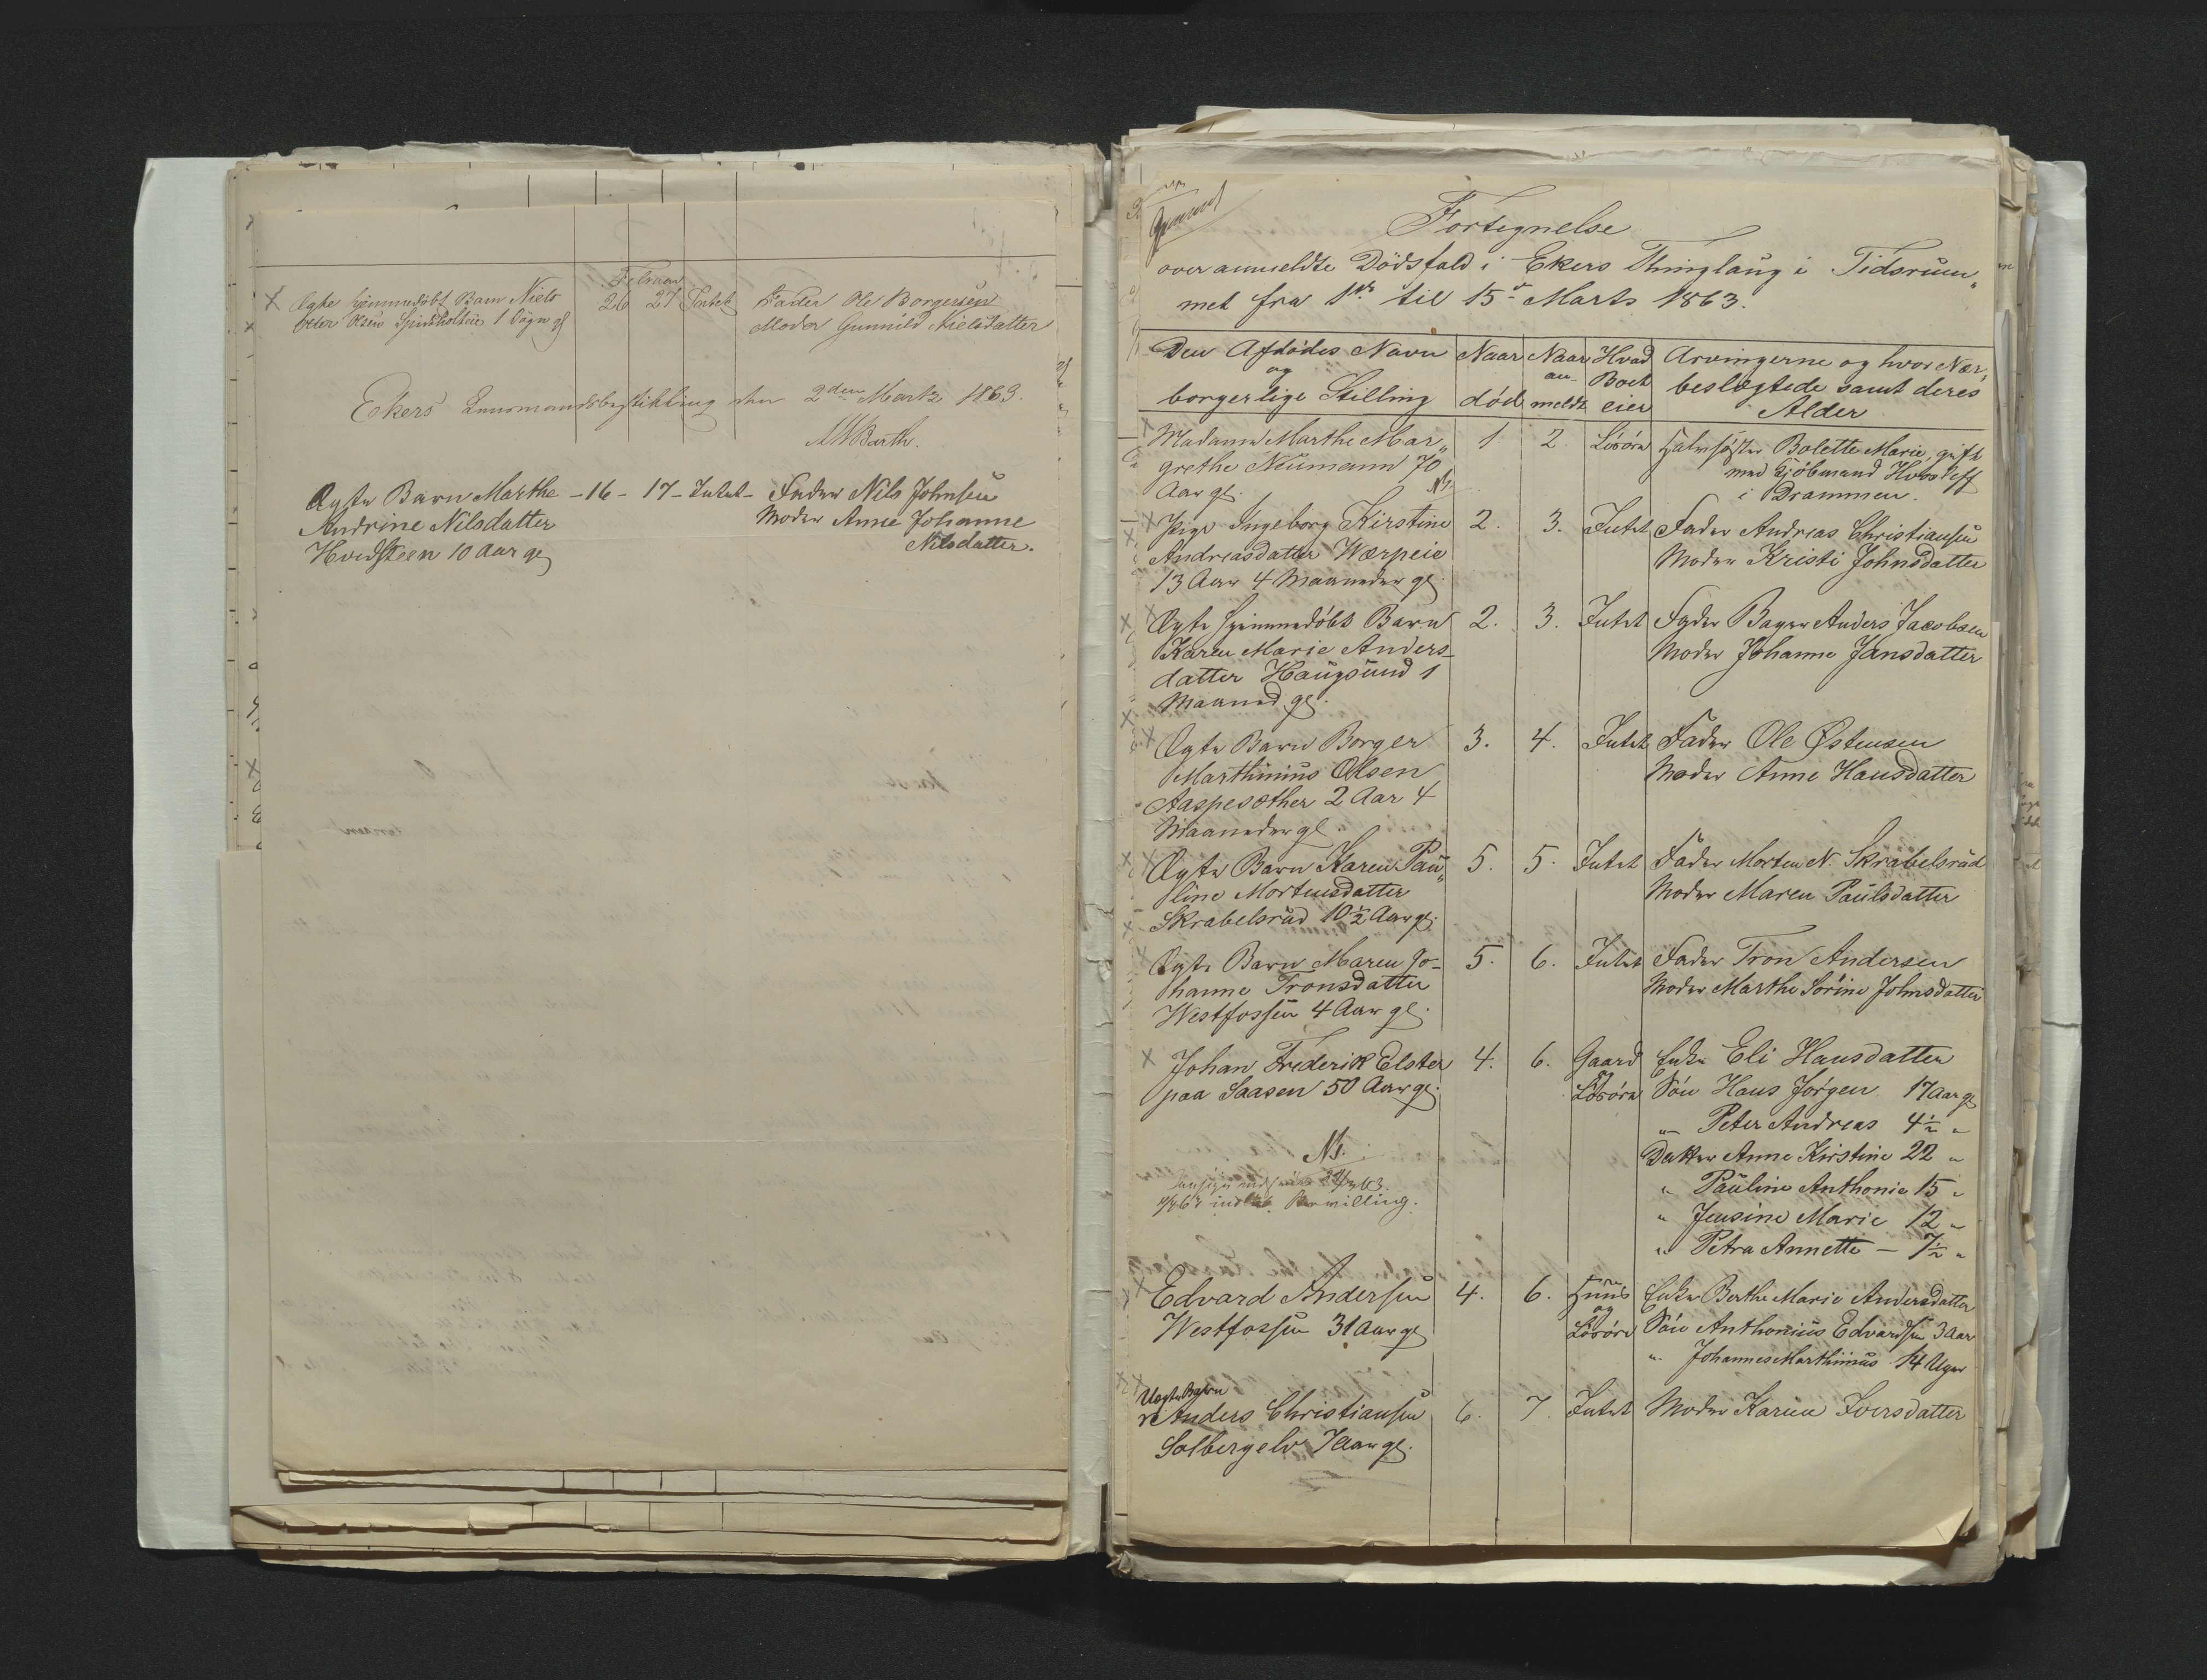 Februar
Ægte hjemmedøbt Barn Niels 26 27 Intet Fader Ole Borgersen
Peter Olsen 1 Døgn gl Moder Gunnild Nielsdatter
Ekers Lensmandsbestilling den 2den Marts 1863.
Barth.
Ægte Barn Marthe - 16 - 17 - Intet - Fader Nils Johnsen
Andrine Nilsdatter Moder Anne Johanne
Hvidsteen 10 Aar gl Nilsdatter.
Fortegnelse
over anmeldte Dødsfald i Ekers Thinglaug i Tidsrum„
met fra 1ste til 15de Marts 1863.
Den Afdødes Navn Naar Naar Hvad Arvingerne og hvor Nær„
og an- Boet beslægtede samt deres
borgerlige Stilling død meldt eier Alder
Madame Marthe Mar„ 1. 2. Løsøre Halvsøster Bolette Marie, gift
grethe Neumann 70 med Kjøbmand
Aar gl. Ns. i Drammen.
Pige Ingeborg Kirstine 2. 3. Intet Fader Andreas Christiansen
Andreasdatter Værpeie Moder Kristi Johnsdatter
13 Aar 4 Maaneder gl.
Ægte hjemmedøbt Barn 2. 3. Intet Fader Bager Anders Jacobsen
Karen Marie Anders- Moder Johanne Jansdatter
datter Haugsund 1
Maaned gl.
Ægte Barn Borger 3. 4. Intet Fader Ole Østensen
Marthinius Olsen Moder Anne Hansdatter
Aaspesæther 2 Aar 4
Maaneder gl.
Ægte Barn Karen Pau„ 5. 5. Intet Fader Morten N. Skrabelsrud
line Mortensdatter Moder Maren Paulsdatter
Skrabelsrud 10½ Aar gl.
Ægte Barn Maren Jo- 5. 6. Intet Fader Tron Andersen
hanne Tronsdatter Moder Marthe Sørine Johnsdatter
Westfossen 4 Aar gl.
Johan Frederik Elster 4. 6. Gaard Enke Eli Hansdatter
paa Saasen 50 Aar gl. og Løsøre Søn Hans Jørgen 17 Aar gl
„ Peter Andreas 4½ „
Datter Anne Kirstine 22 „
Ns. „ Pauline Anthonie 15 „
Bevilling. „ Jensine Marie 12 „
„ Petra Annette - 7½ „
Edvard Andersen 4. 6. Huus Enke Berthe Marie Andersdatter
Westfossen 31 Aar gl og Løsøre Søn Anthonius Edvardsen 3 Aar
„ Johannes Marthinius 14 Uger
Uægte Barn
Anders Christiansen 6. 7. Intet Moder Karen Iversdatter
Solbergelv 7 Aar gl.